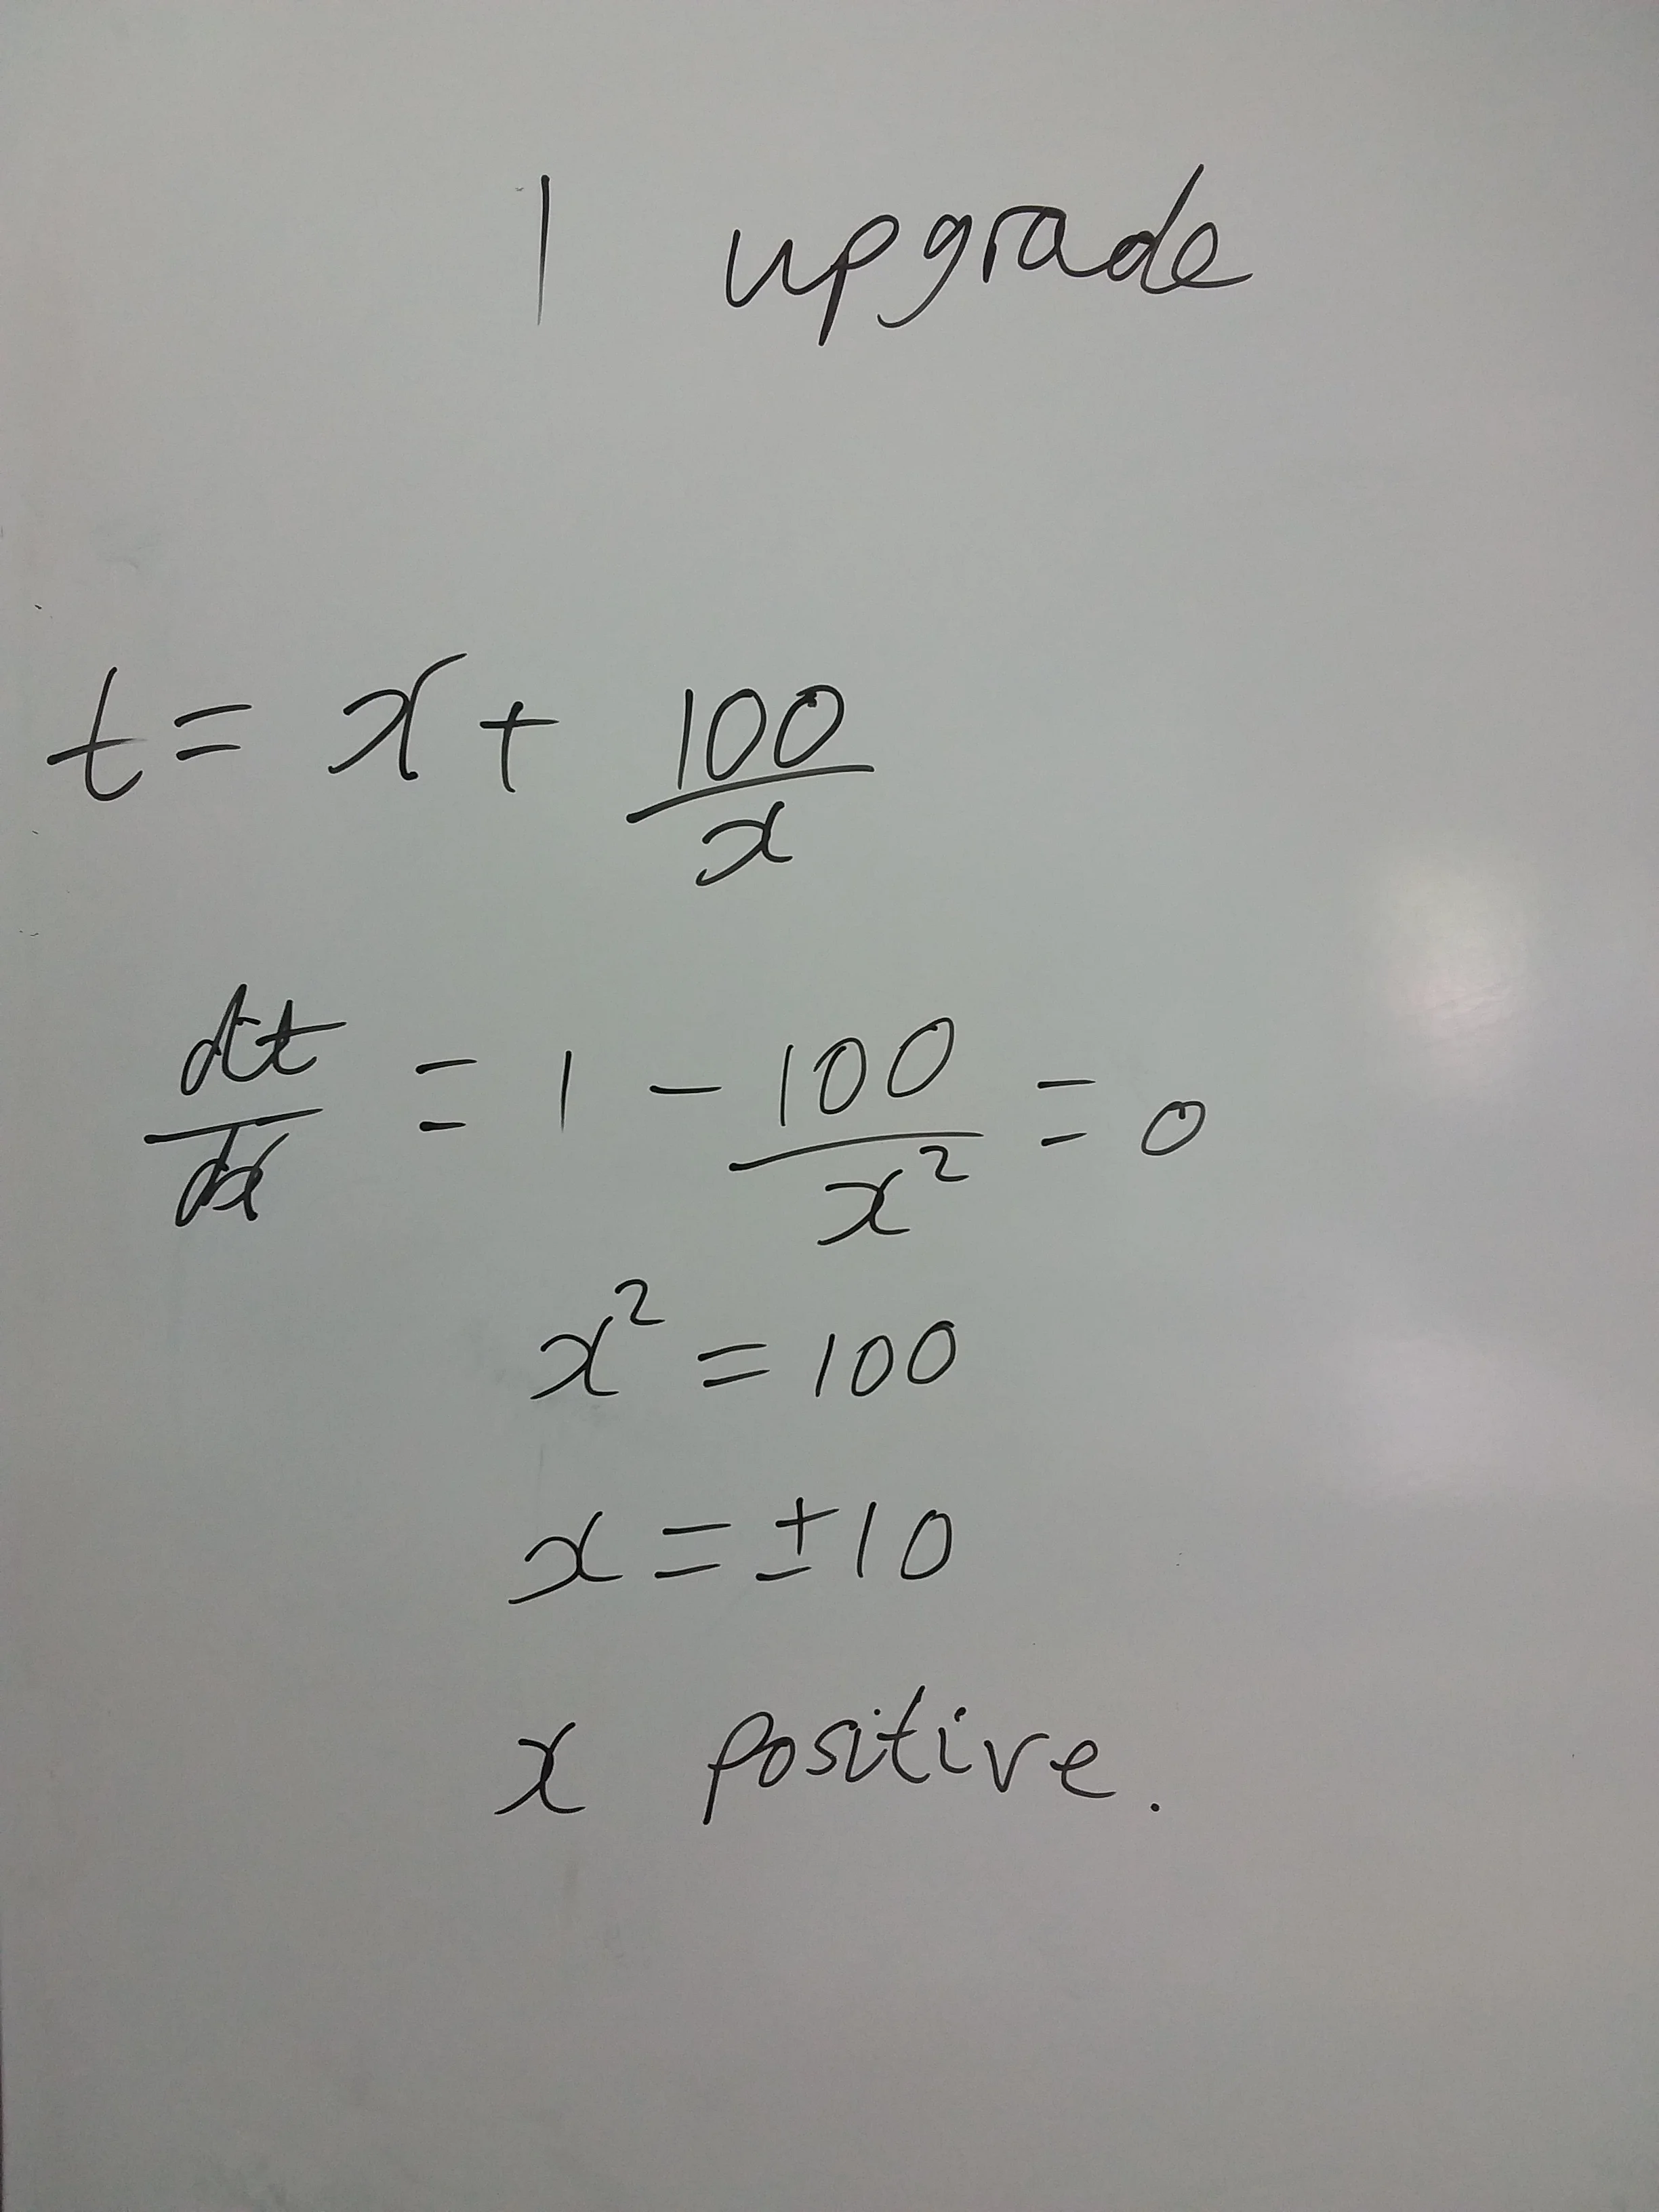 1 upgrade
t = x + 100/x
dt/dx = 1 - 100/x² = 0
x² = 100
x = ±10
x positive.